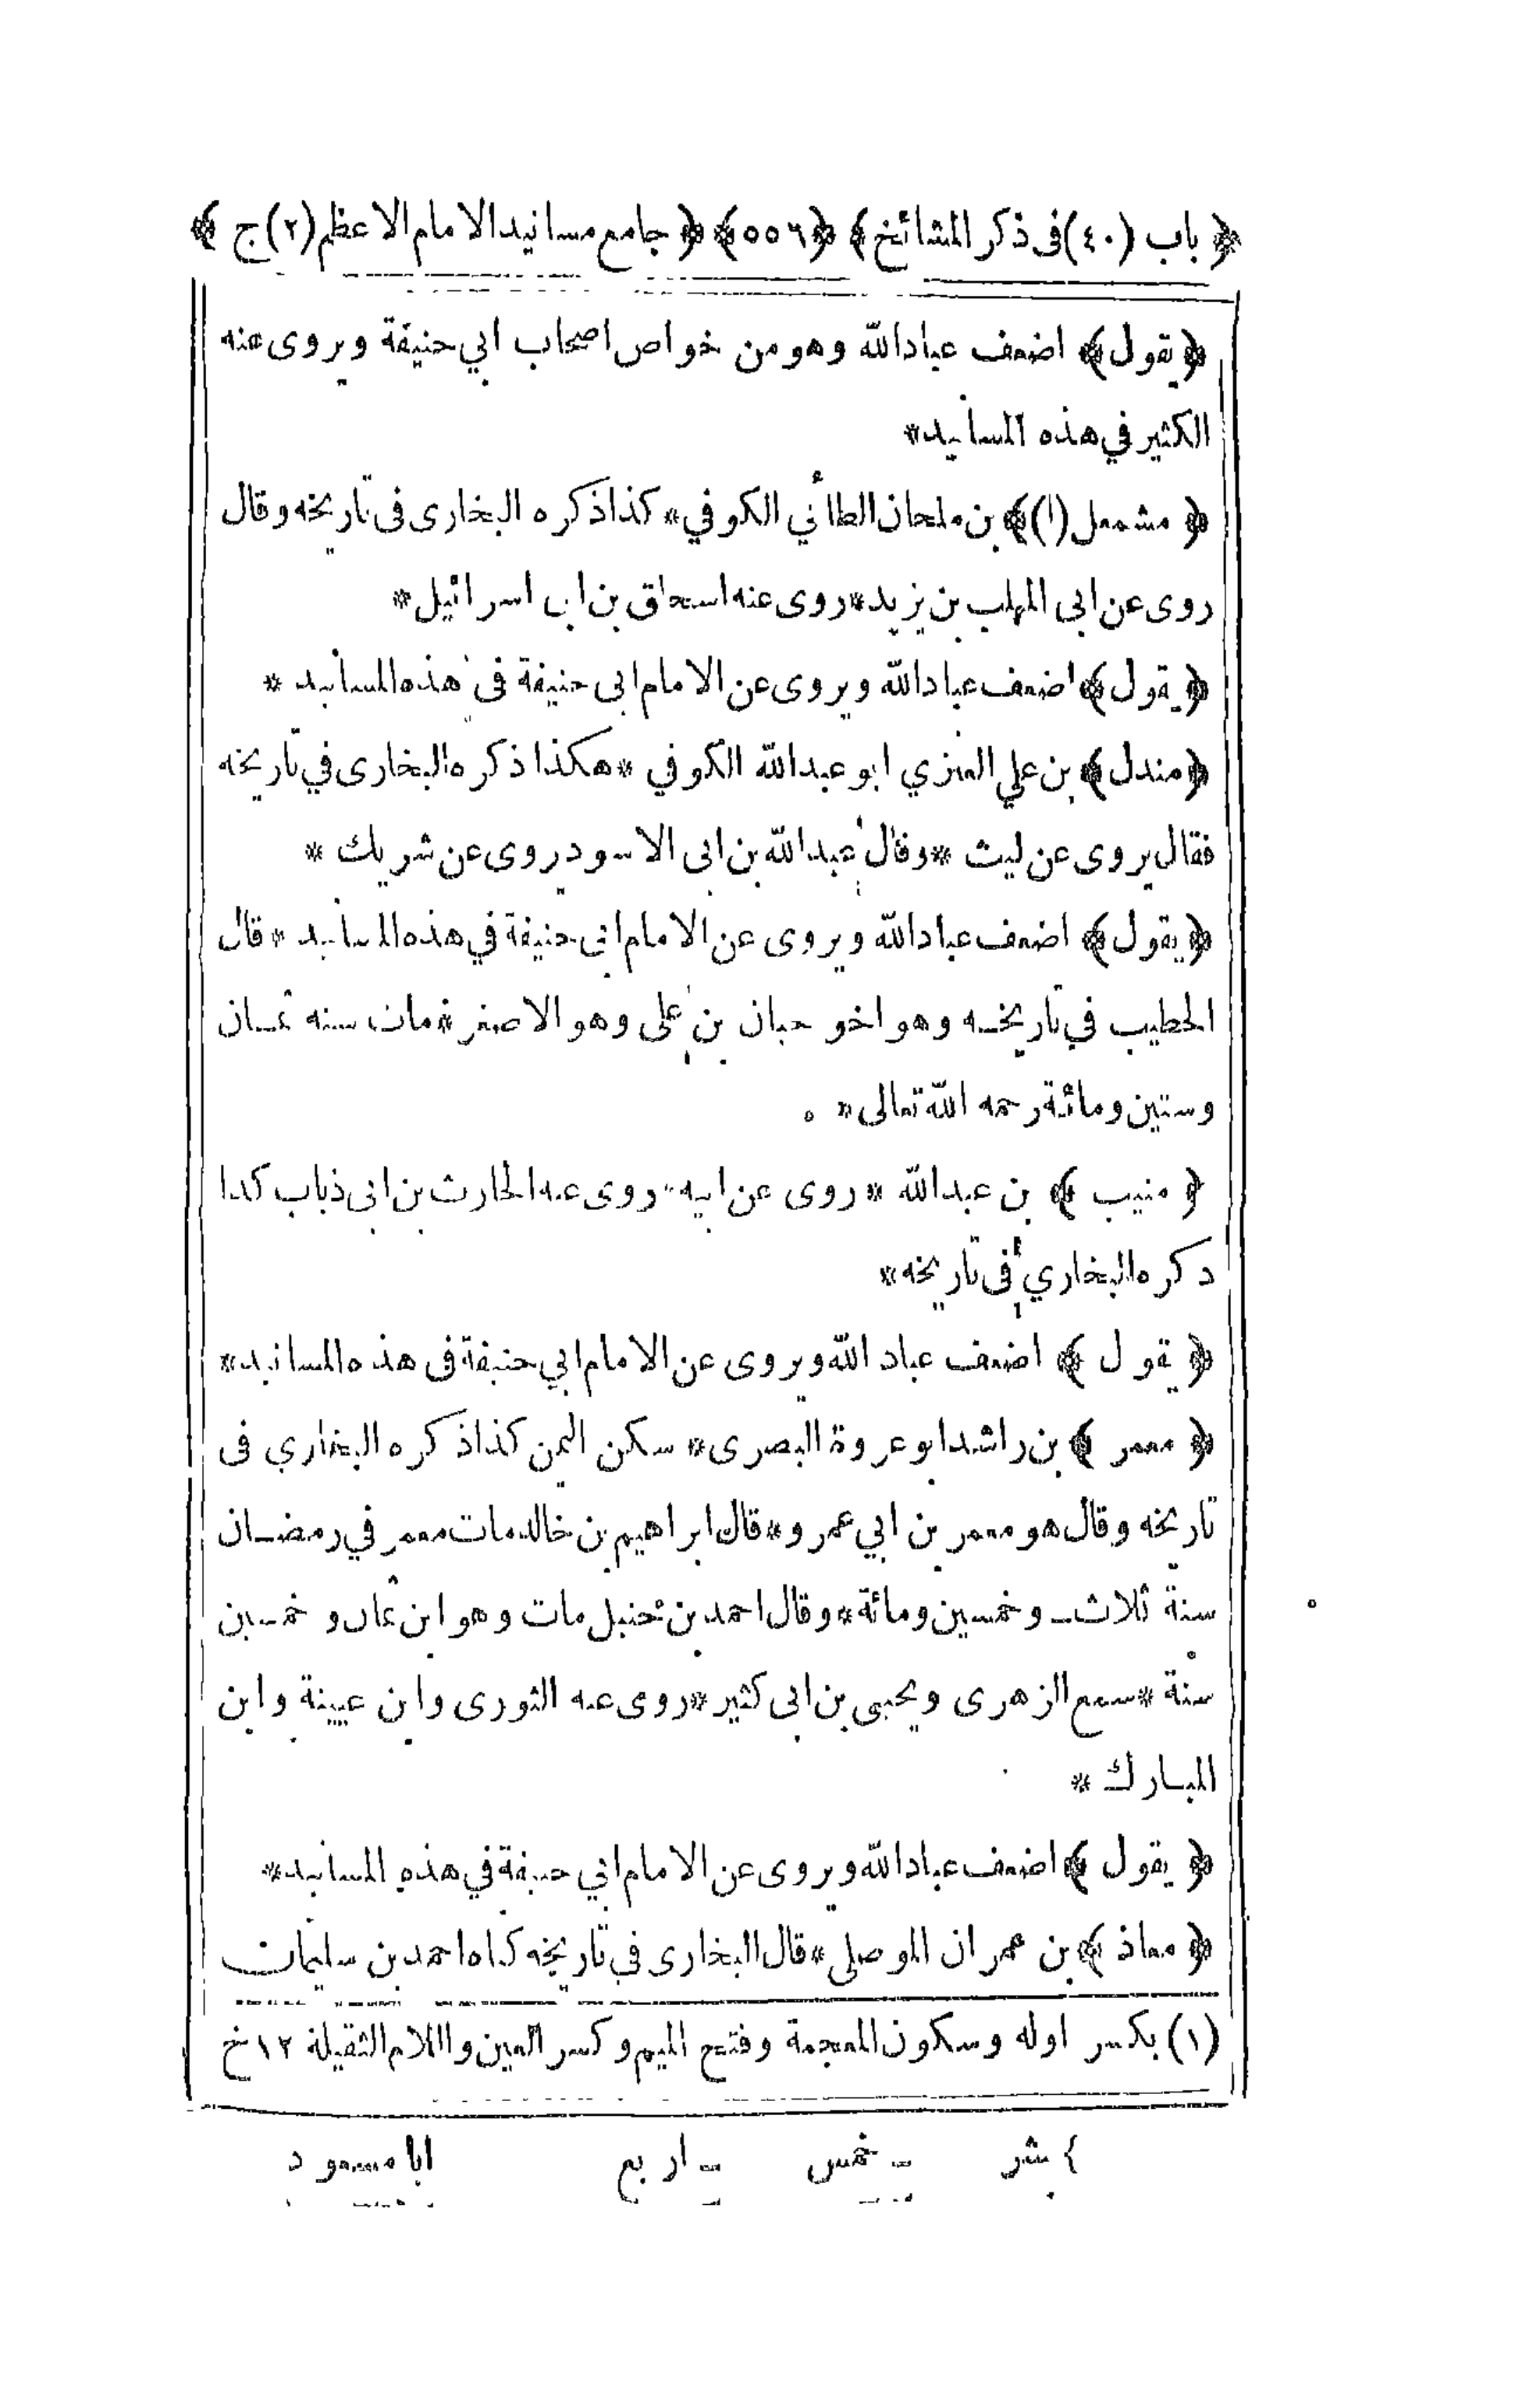 ﴿ باب (٤٠) فى ذكر المشائخ ﴾ ﴿ ٥٥٦ ﴾ ﴿ جامع مسانيد الامام الاعظم (٢) ج ﴾
﴿ يقول ﴾ اضعف عباد الله وهو من خواص اصحاب ابي حنيفة ويروى عنه
الكثير في هذه المسانيد *
﴿ مشمعل (١) ﴾ بن ملحان الطائي الكوفي * كذا ذكره البخارى فى تاريخه وقال
روى عن ابى المهلب بن يزيد * روى عنه اسحاق بن ابى اسرائيل *
﴿ يقول ﴾ اضعف عباد الله ويروى عن الامام ابى حنيفة فى هذه المسانيد *
﴿ مندل ﴾ بن علي العنزي ابو عبد الله الكوفي * هكذا ذكره البخارى في تاريخه
فقال يروى عن ليث * وقال عبد الله بن ابى الاسود يروى عن شريك *
﴿ يقول ﴾ اضعف عباد الله ويروى عن الامام ابى حنيفة في هذه المسانيد * قال
الخطيب في تاريخه وهو اخو حبان بن على وهو الاصغر * مات سنه ثمان
وستين ومائة رحمه الله تعالى *
﴿ منيب ﴾ بن عبد الله * روى عن ابيه * روى عنه الحارث بن ابى ذباب كذا
ذكره البخاري فى تاريخه *
﴿ يقول ﴾ اضعف عباد الله ويروى عن الامام ابي حنيفة فى هذه المسانيد *
﴿ معمر ﴾ بن راشد ابو عروة البصرى * سكن اليمن كذا ذكره البخاري فى
تاريخه وقال هو معمر بن ابي عمرو * قال ابراهيم بن خالد مات معمر في رمضان
سنة ثلاث وخمسين ومائة * وقال احمد بن حنبل مات وهو ابن ثمان وخمسين
سنة * سمع الزهرى ويحيى بن ابى كثير * روى عنه الثورى وابن عيينة وابن
المبارك *
﴿ يقول ﴾ اضعف عباد الله ويروى عن الامام ابي حنيفة في هذه المسانيد *
﴿ معاذ ﴾ بن عمران الموصلي * قال البخارى في تاريخه كناه احمد بن سليمان
(١) بكسر اوله وسكون المعجمة وفتح الميم وكسر العين واللام الثقيلة ١٢ خ
شر خمس اربع ابا مسعود